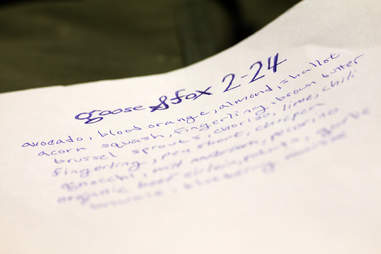 goose & fox 2-24
avocado, blood orange, almond, shallot
acorn squash, fingerling, brown butter
brussel sprouts, chorizo, lime, chili
fingerling, pea shoot,
gnocchi, pecorino
organic beef sirloin,
blueberry